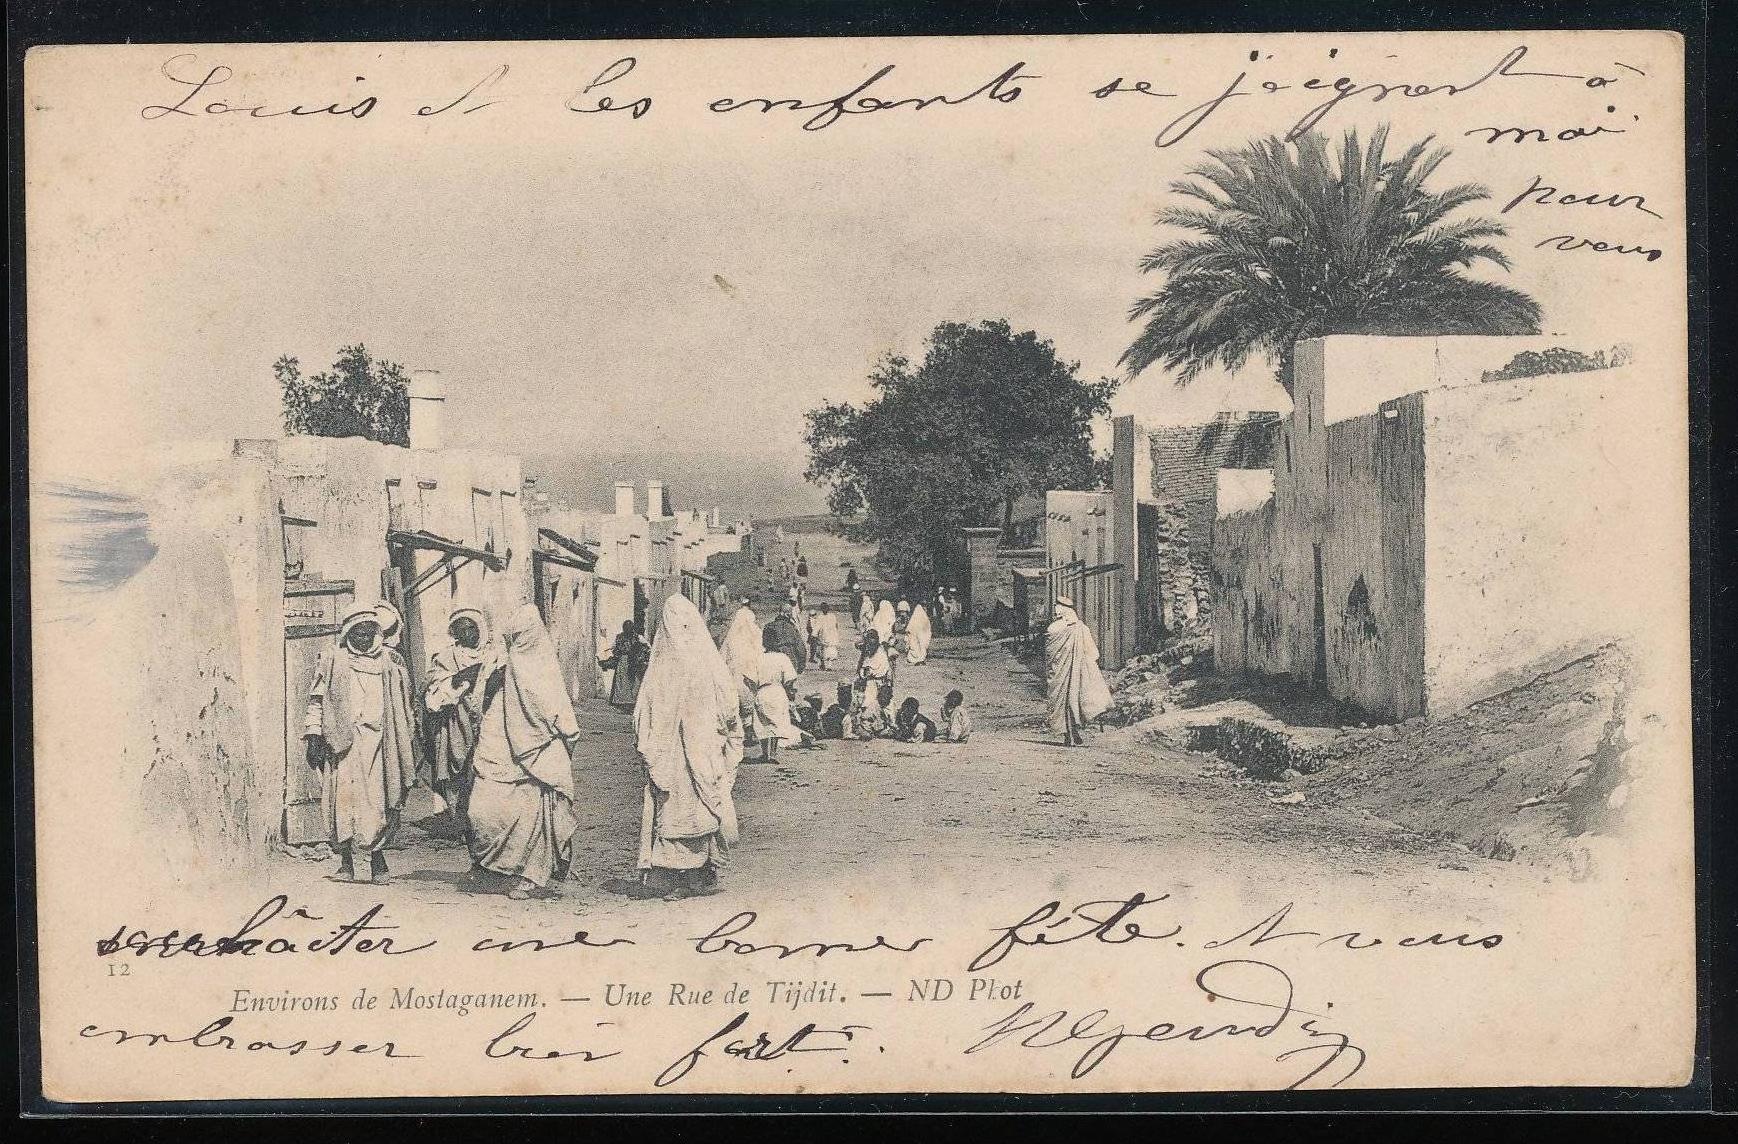 Louis et les enfants se joignent à
moi
pour
vous
souhaiter une bonne fête. Et vous
12
Environs de Mostaganem. — Une Rue de Tijdit. — ND Phot
embrasser bien fort.